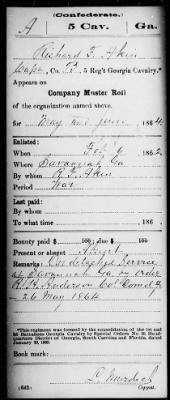 (Confederate.)
A 5 Cav. Ga.
Richard F. Akin
Capt, Co. F, 5 Reg't Georgia Cavalry.*
Appears on
Company Muster Roll
of the organization named above,
for May and June, 1864.
Enlisted:
When Feb'y, 1862.
Where Savannah Ga
By whom R. F. Akin
Period War
Last paid:
By whom
To what time, 186 .
Bounty paid $ 100; due $ 100
Present or absent Absent
Remarks: On detached service
at Savannah Ga by order
R. H. Anderson Col Com'd'g
26 May 1864
*This regiment was formed by the consolidation of the 1st and 2d Battalions Georgia Cavalry by Special Orders No. 20, Headquarters District of Georgia, South Carolina and Florida, dated January 20, 1863.
Book mark:
(642)